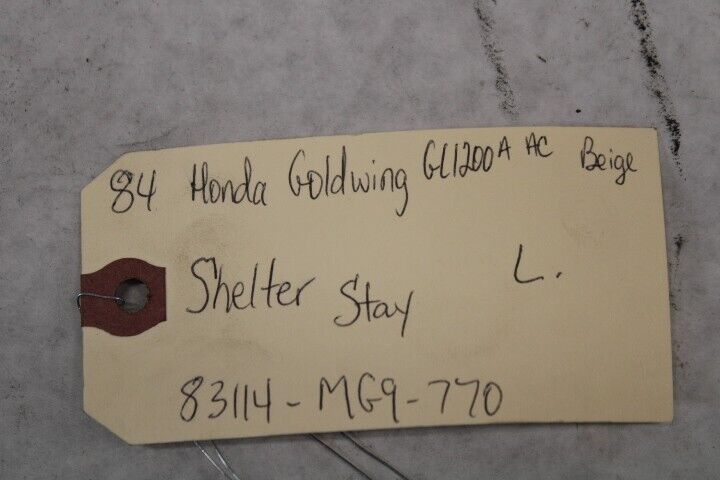 84 Honda Goldwing GL1200A AC Beige
Shelter Stay L.
83114-MG9-770